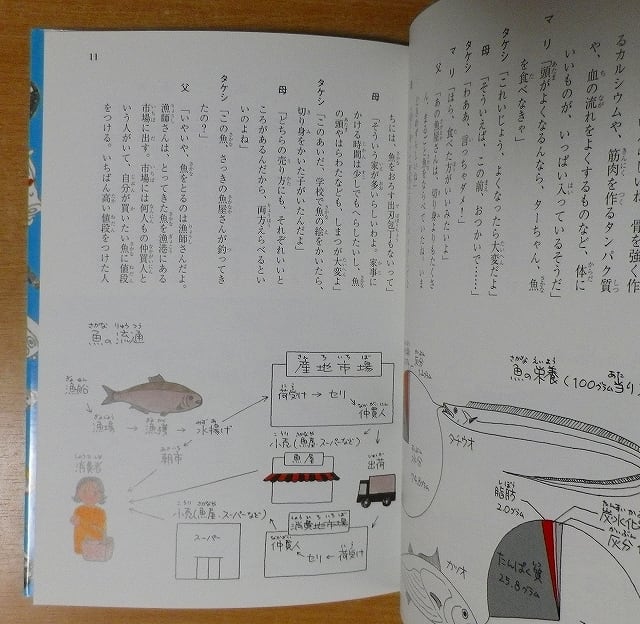 骨を強く作
るカルシウムや、筋肉を作るタンパク質
や、血の流れをよくするものなど、体に
いいものが、いっぱい入っているそうだ」
マリ「頭がよくなるんなら、ターちゃん、魚
を食べなきゃ」
タケシ「これいじょう、よくなったら大変だよ」
母「そういえば、この前、おつかいで……」
タケシ「わああ、言っちゃダメー」
マリ「ほら、食べた方がいいみたいよ」
父「あの魚屋さんは、切り身よりもたくさ
ん、まるごと魚をならべていたね。いま
魚の栄養(100グラム当り)
タチウオ
脂肪
20グラム
炭水化
灰分
たんぱく質
25.8グラム
カツオ
ちには、魚をおろす出刃包丁もないって」
母「そういう家が多いらしいわよ。家事に
かける時間は少しでもへらしたいし、魚
の頭やはらわたなども、しまつが大変よ」
タケシ「このあいだ、学校で魚の絵をかいたら、
切り身をかいた子がいたんだよ」
母「どちらの売り方にも、それぞれいいと
ころがあるんだから、両方えらべるとい
いのよね」
タケシ「この魚、さっきの魚屋さんが釣ってき
たの？」
父「いやいや、魚をとるのは漁師さんだよ。
漁師さんは、とってきた魚を漁港にある
市場に出す。市場には何人もの仲買人と
いう人がいて、自分が買いたい魚に値段
をつける。いちばん高い値段をつけた人
11
魚の流通
漁船
漁場→漁獲→水揚げ
朝市
産地市場
荷受け→セリ
仲買人
出荷
小売(魚屋、スーパーなど)
魚屋
消費地市場
荷受け
セリ
仲買人
小売(魚屋、スーパーなど)
スーパー
消費者